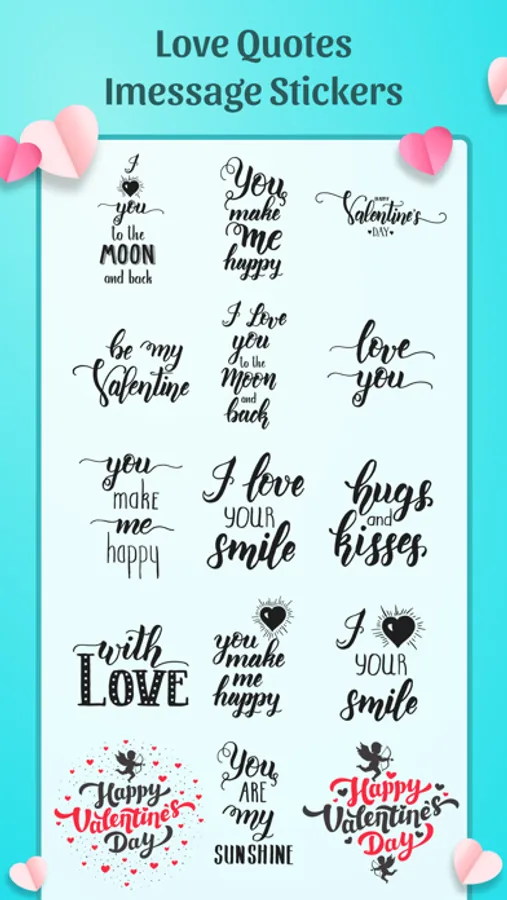 Love Quotes
Imessage Stickers
I
you
to the
MOON
and back
You
make
me
happy
HAPPY
Valentine's
DAY
be my
Valentine
I Love
you
to the
Moon
and
back
love
you
you
make
me
happy
I love
YOUR
smile
hugs
and
kisses
with
LOVE
you
make
me
happy
I
YOUR
smile
Happy
Valentine's
Day
You
ARE
my
SUNSHINE
Happy
Valentine's
Day